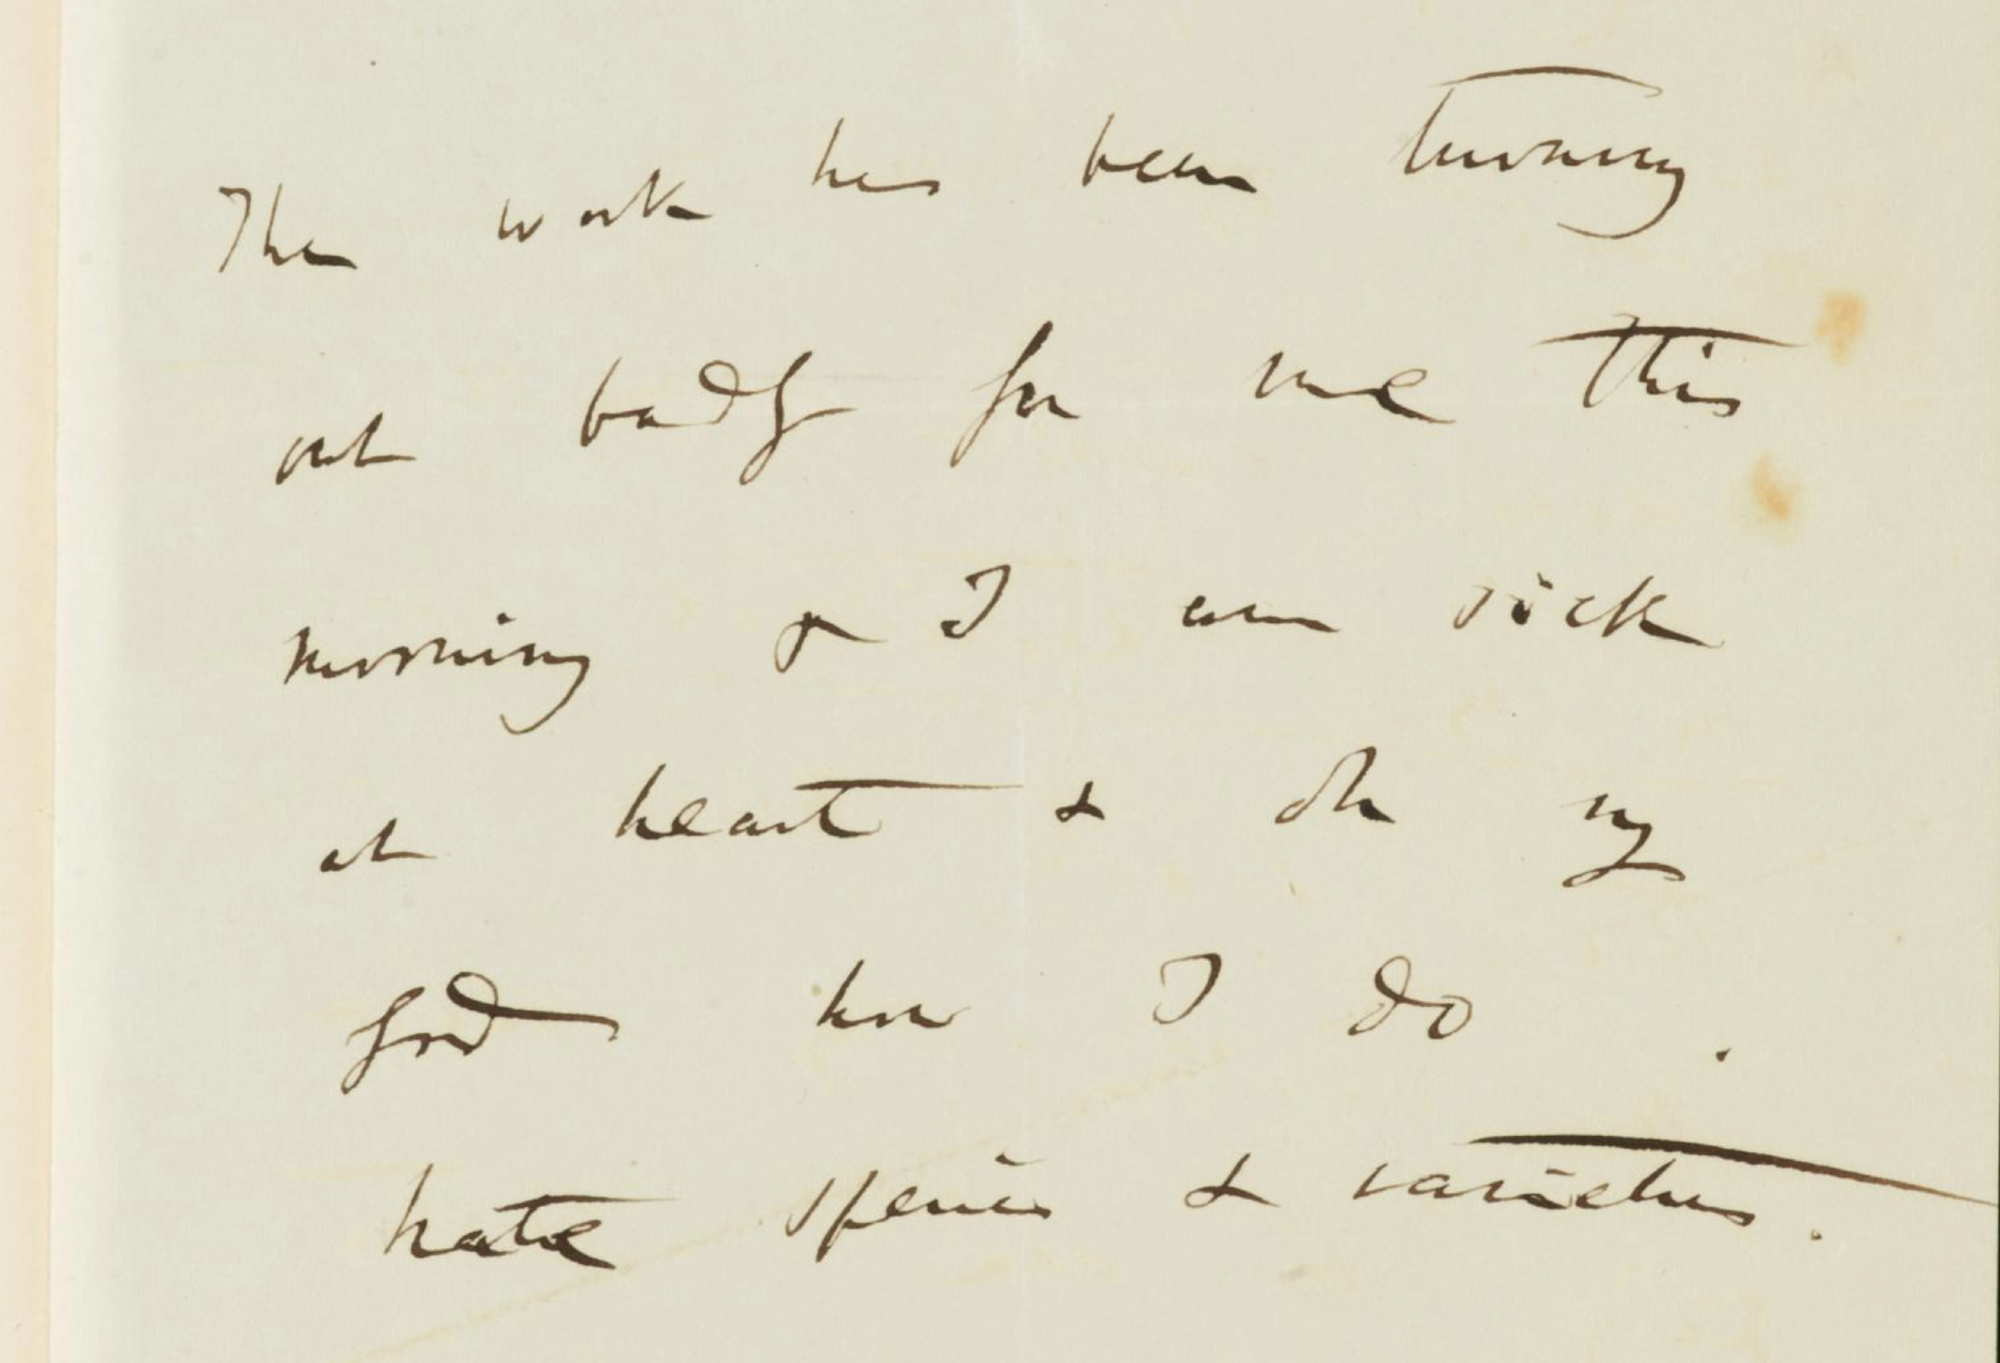 The work has been turning
out badly for me this
morning & I am sick
at heart & oh my
God how I do
hate species & varieties.